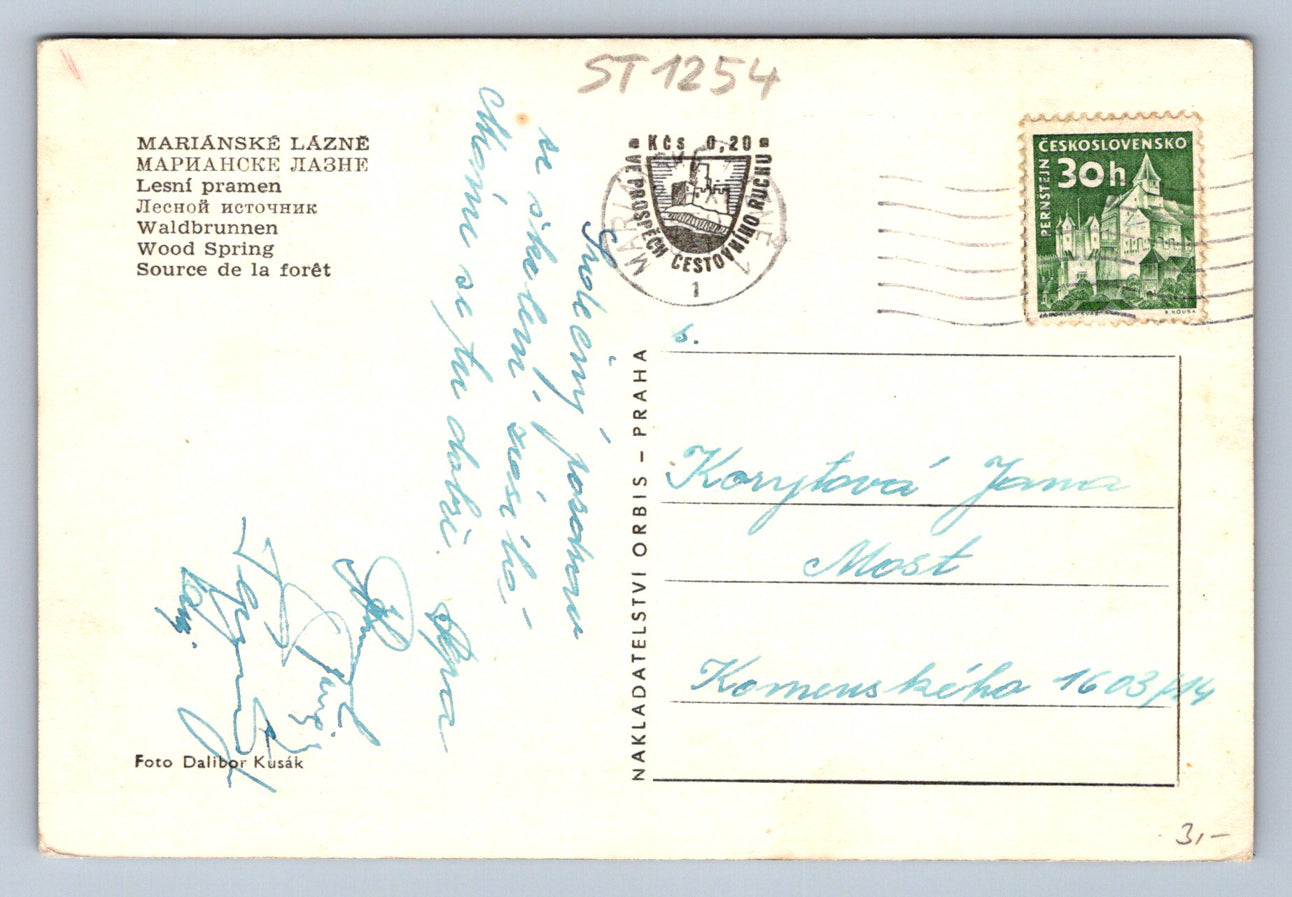 ST 1254
MARIÁNSKÉ LÁZNĚ
МАРИАНСКЕ ЛАЗНЕ
Lesní pramen
Лесной источник
Waldbrunnen
Wood Spring
Source de la forêt
Srdečný pozdrav
se školení zasílá
Máme se tu dobře.
Foto Dalibor Kusák
NAKLADATELSTVÍ ORBIS – PRAHA
Kčs 0,20
VE PROSPĚCH CESTOVNÍHO RUCHU
1
ČESKOSLOVENSKO
30h
PERNŠTEJN
s.
Korytová Jana
Most
Komenského 1603/14
3,–